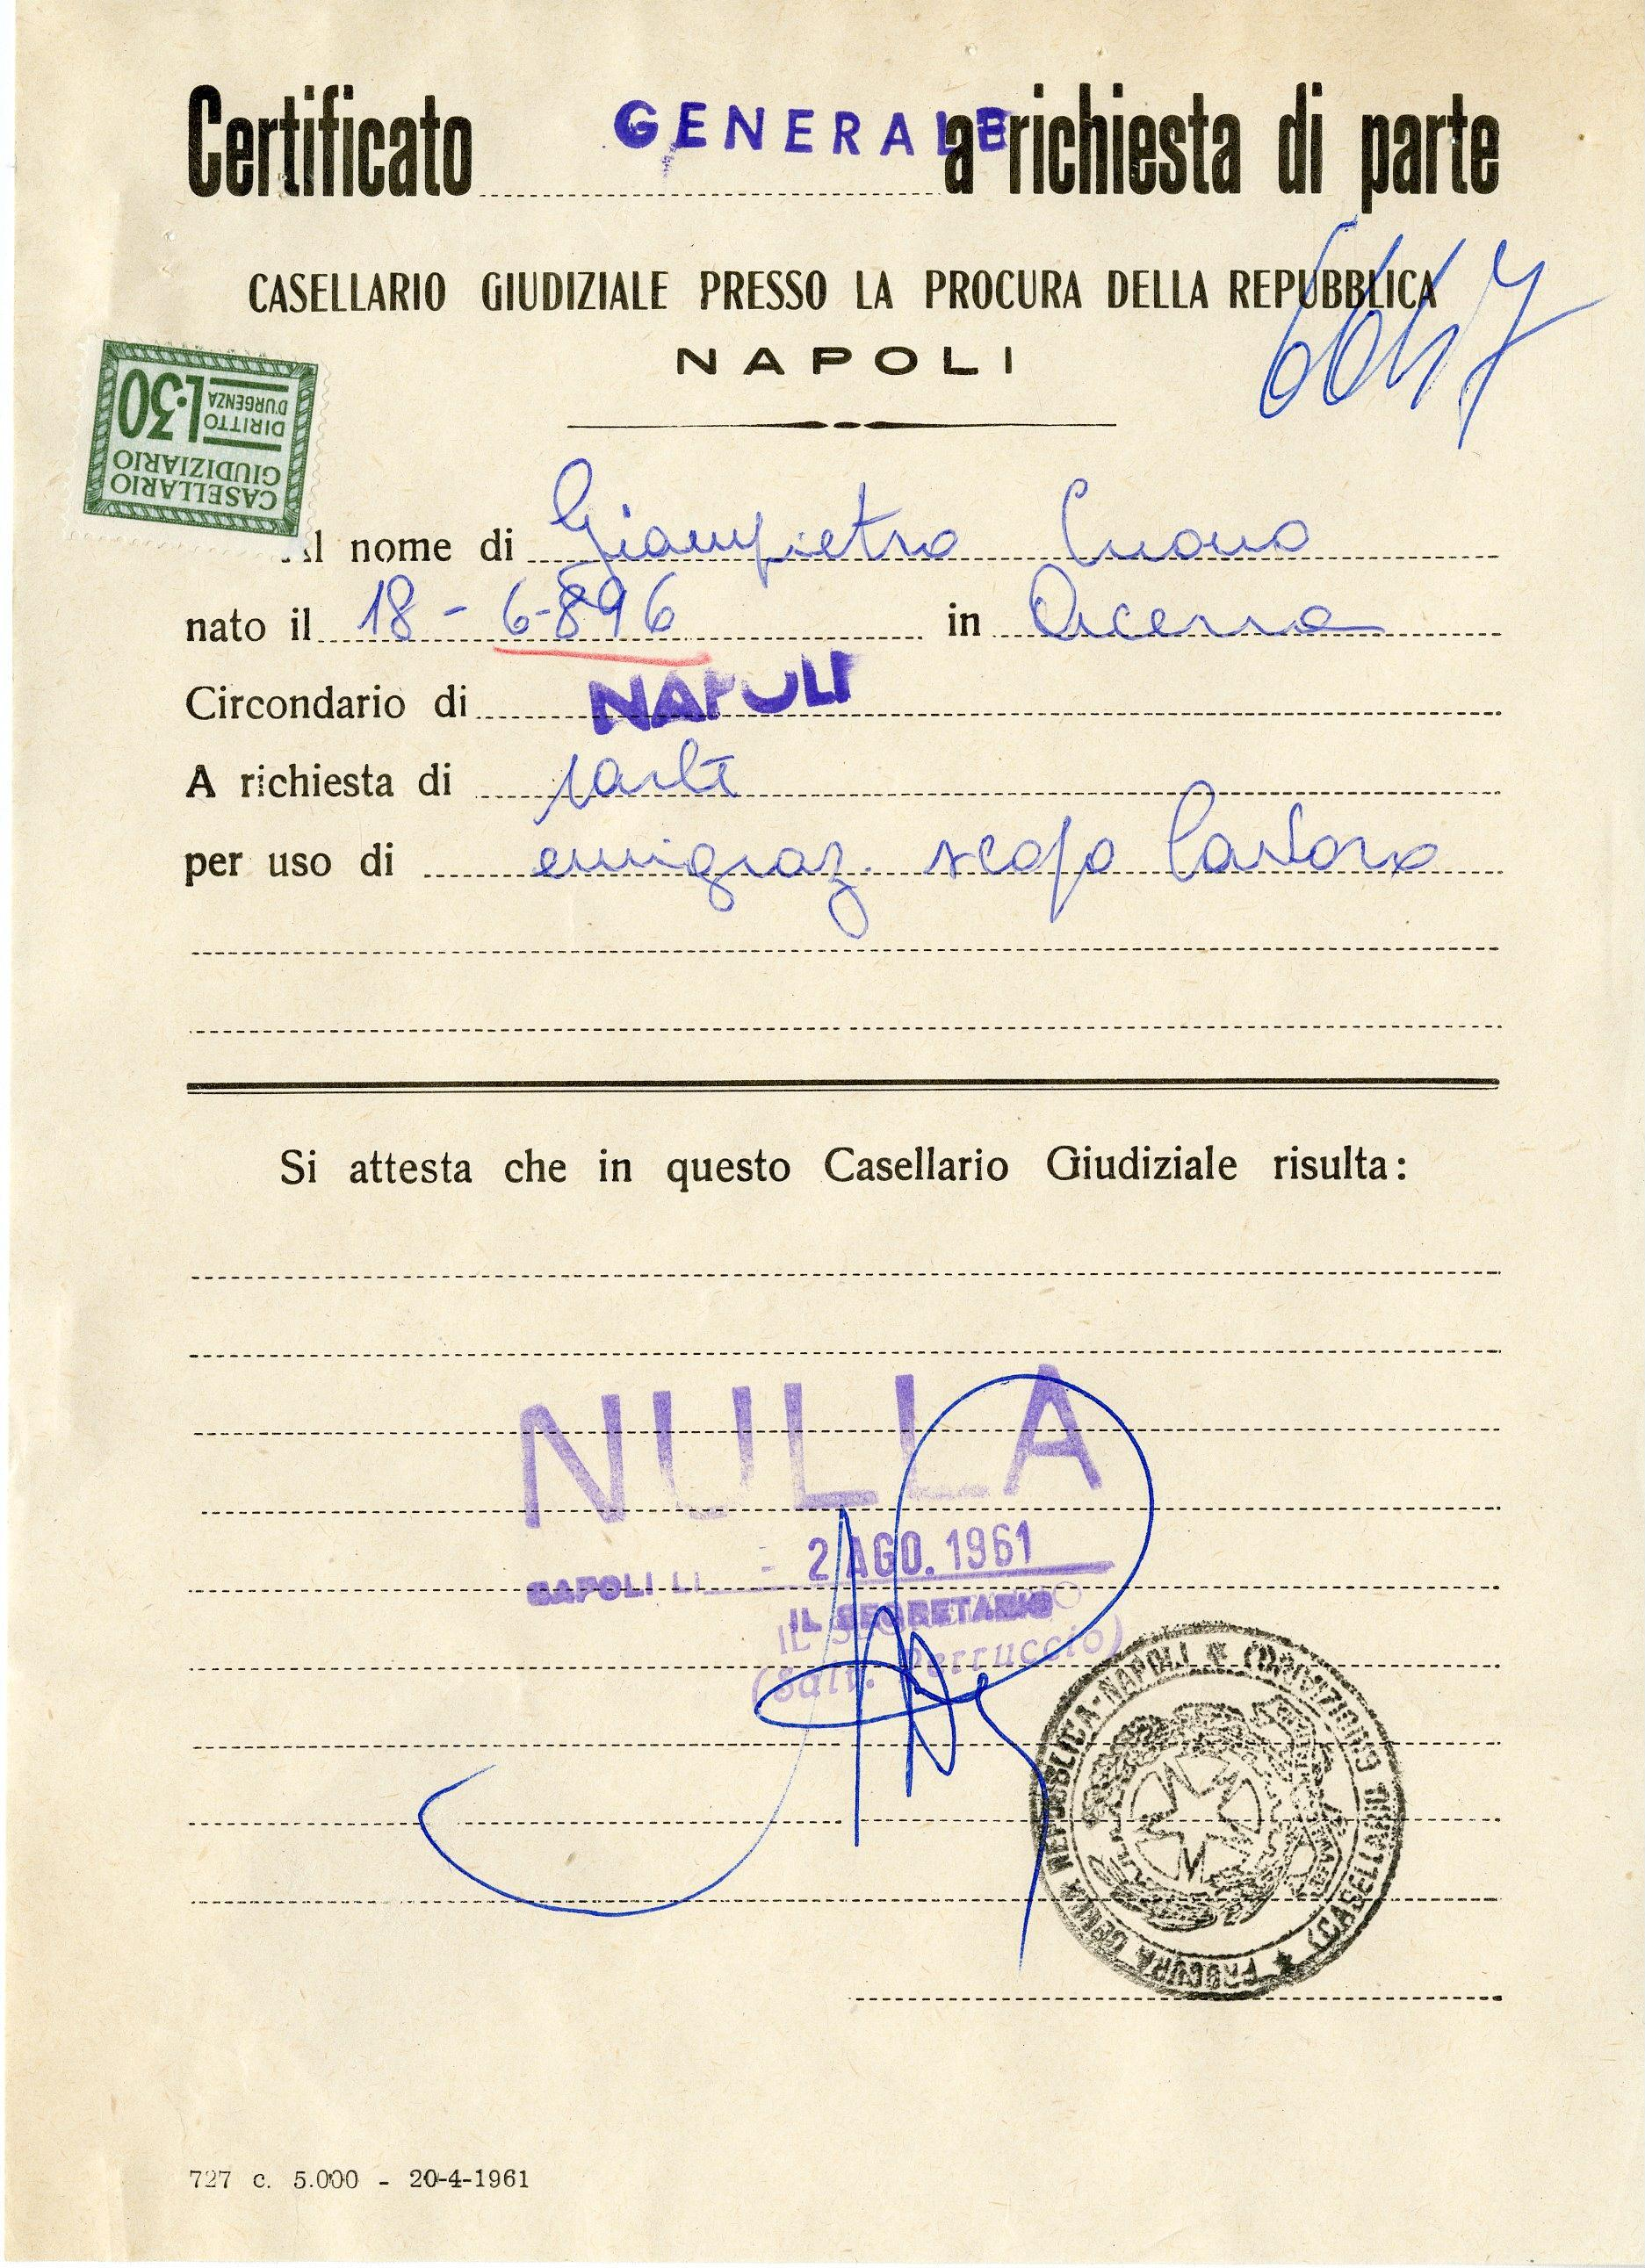 Certificato GENERALE a richiesta di parte
CASELLARIO GIUDIZIALE PRESSO LA PROCURA DELLA REPUBBLICA
NAPOLI
6647
CASELLARIO
GIUDIZIARIO
DIRITTO
D'URGENZA
L.30
Al nome di Giampietro Cuono
nato il 18 - 6-896 in Acerra
Circondario di NAPOLI
A richiesta di parte
per uso di emigraz. scopo lavoro
Si attesta che in questo Casellario Giudiziale risulta:
NULLA
NAPOLI LI - 2 AGO. 1961
IL SEGRETARIO
(Salv. Perruccio)
PROCURA DELLA REPUBBLICA-NAPOLI * (CASELLARIO GIUDIZIARIO) *
727 c. 5.000 - 20-4-1961